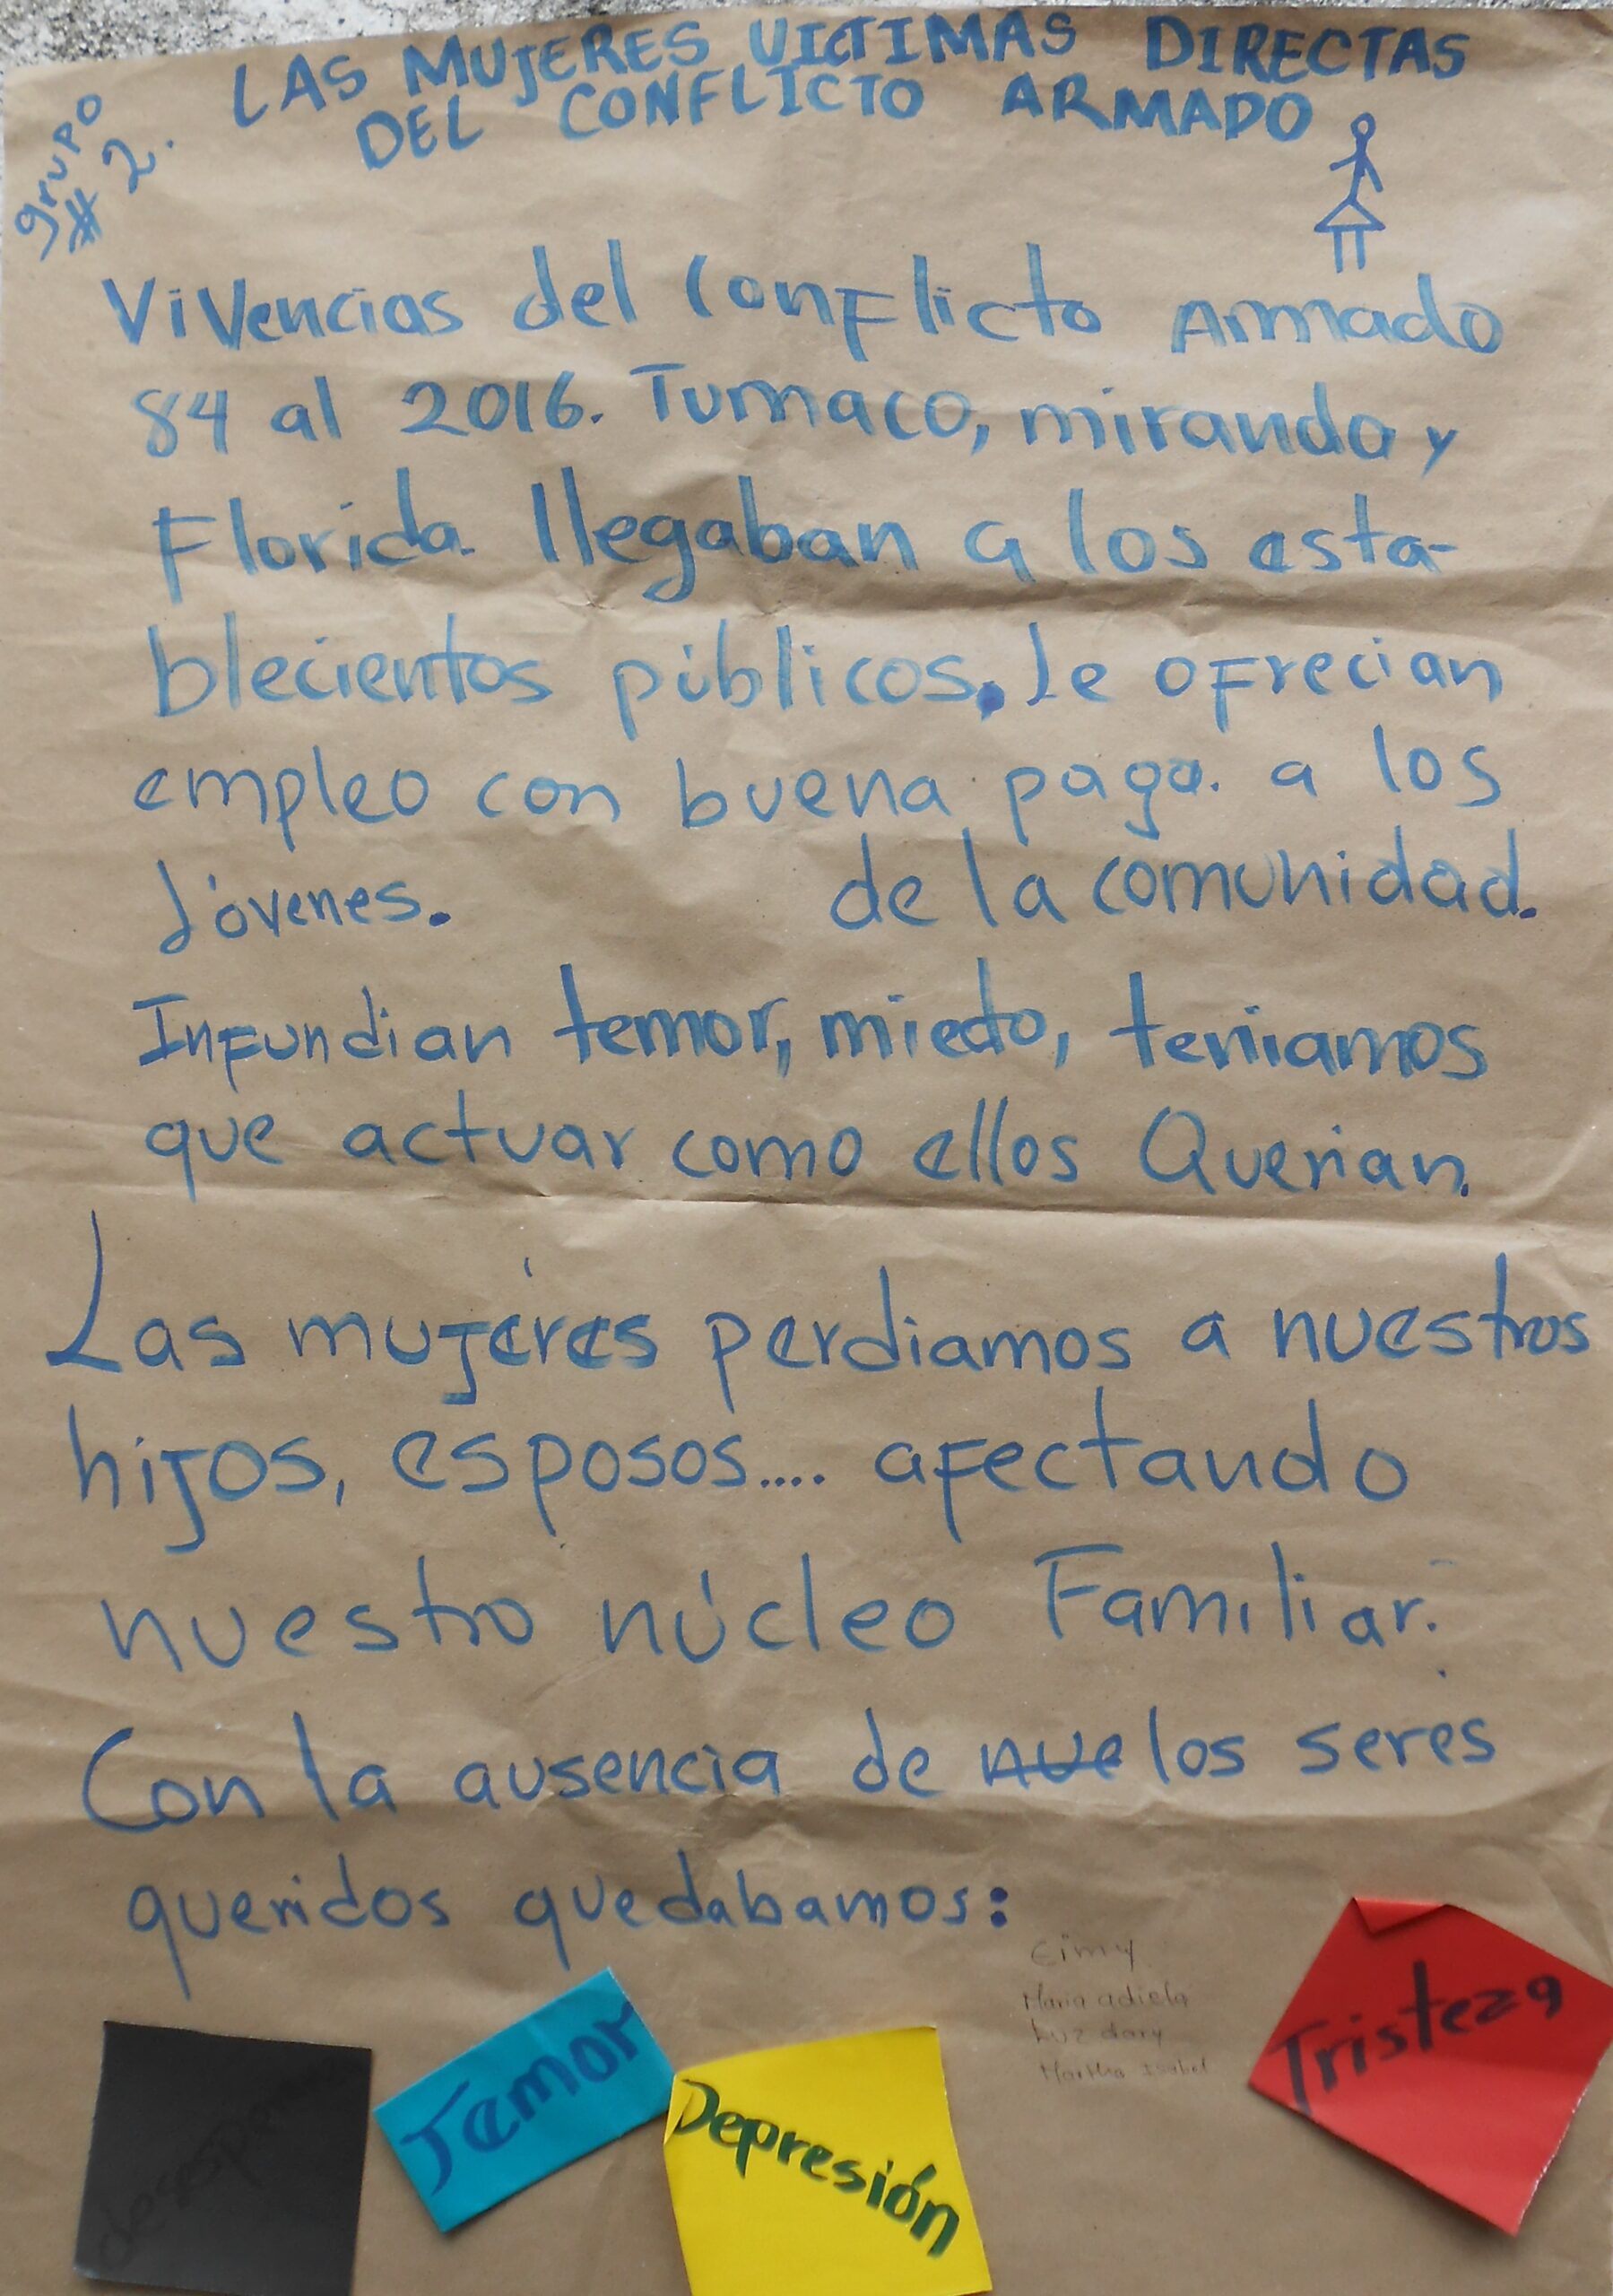 grupo
# 2.
LAS MUJERES VICTIMAS DIRECTAS
DEL CONFLICTO ARMADO
ViVencias del ConFlicto Armado
84 al 2016. Tumaco, miranda y
Florida llegaban a los esta-
blecientos públicos. le oFrecian
empleo con buena paga. a los
Jóvenes. de la comunidad.
InFundian temor, miedo, teniamos
que actuar como ellos Querian.
Las mujeres perdiamos a nuestros
hijos, esposos.... aFectando
nuestro núcleo Familiar.
Con la ausencia de nue los seres
queridos quedabamos:
Eimy
Maria adiela
Luz dary
Martha Isabel
Tristeza
Temor
Depresión